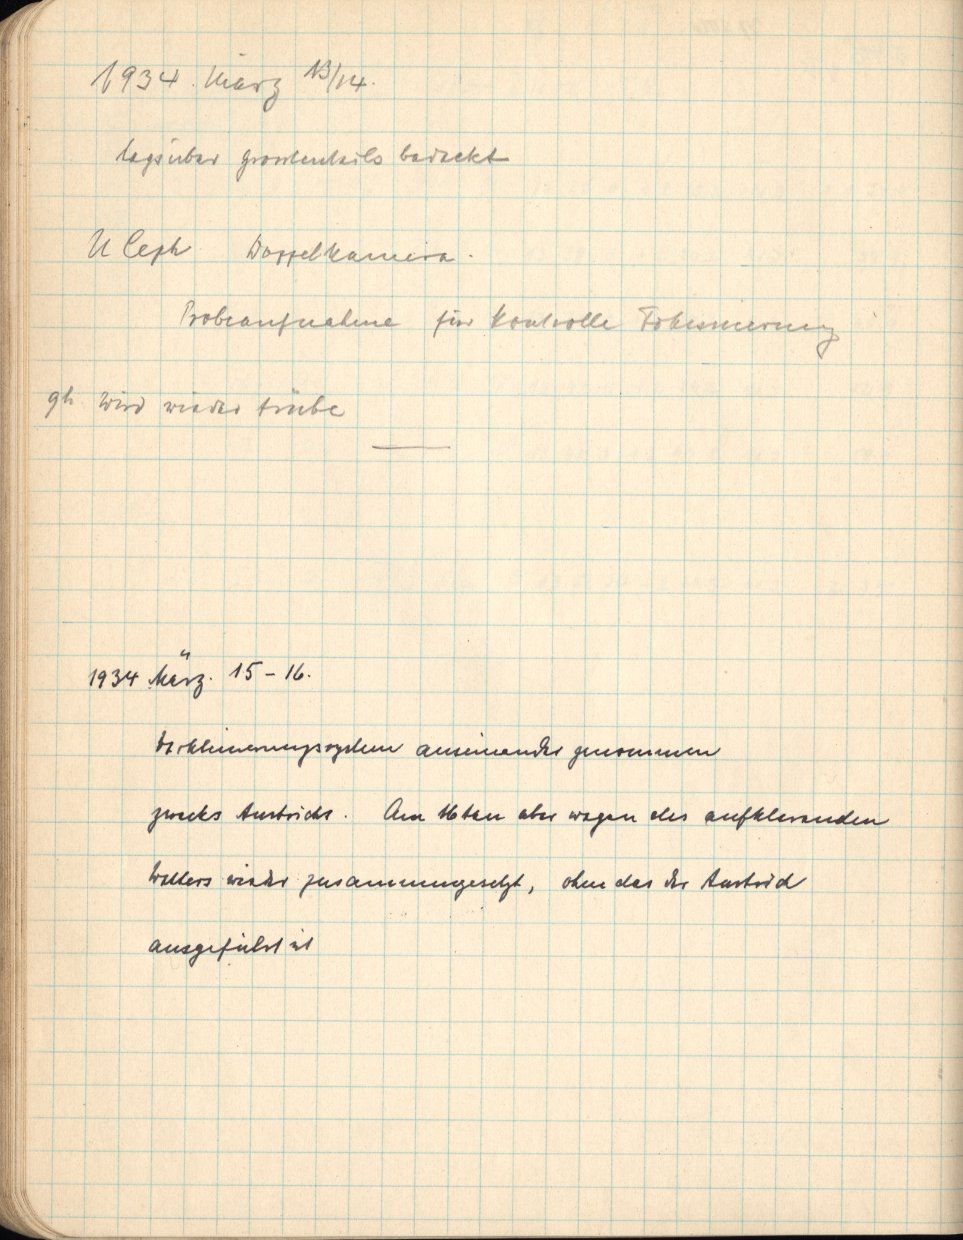 1934. März 13/14.
tagsüber grösstenteils bedeckt
U Ceph Doppelkamera.
Probeaufnahme für Kontrolle Fokussierung
9h wird wieder trübe
1934 März. 15 – 16.
Verkleinerungssystem auseinander genommen
zwecks Anstrichs. Am 16ten aber wegen des aufklarenden
Wetters wieder zusammengesetzt, ohne das der Anstrich
ausgeführt ist